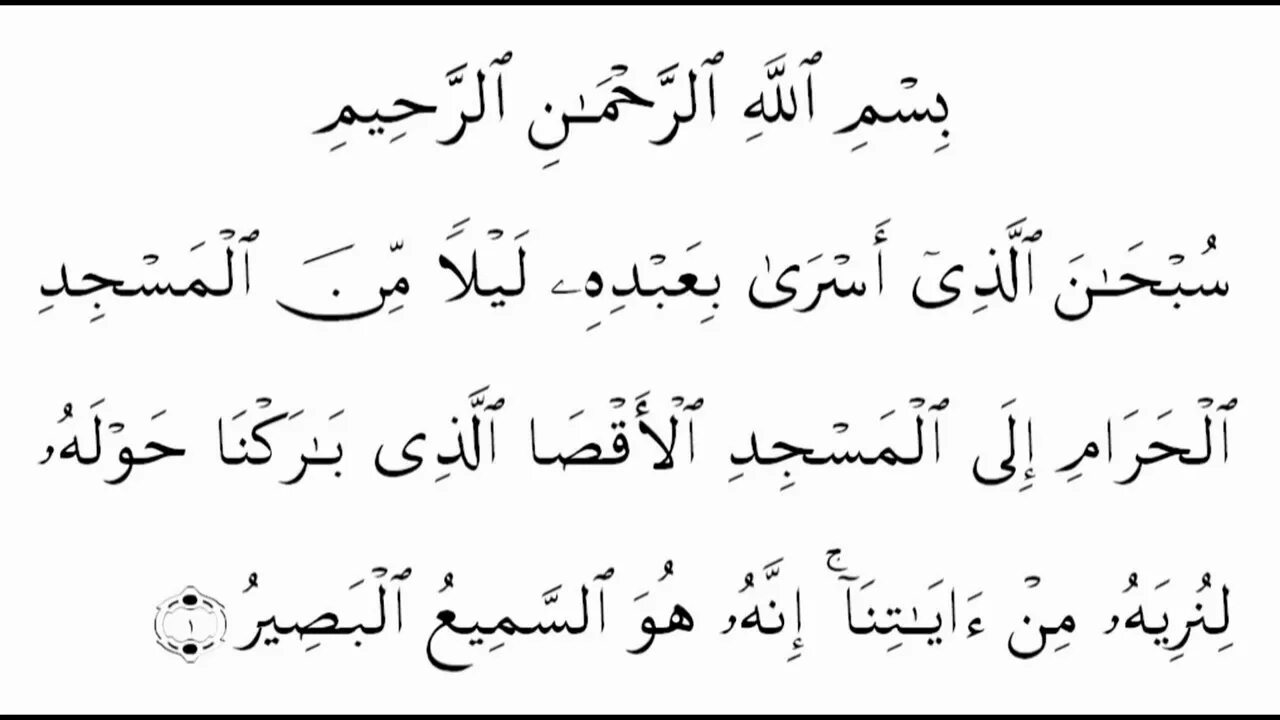 بِسْمِ ٱللَّهِ ٱلرَّحْمَـٰنِ ٱلرَّحِيمِ
سُبْحَـٰنَ ٱلَّذِىٓ أَسْرَىٰ بِعَبْدِهِۦ لَيْلًا مِّنَ ٱلْمَسْجِدِ
ٱلْحَرَامِ إِلَى ٱلْمَسْجِدِ ٱلْأَقْصَا ٱلَّذِى بَـٰرَكْنَا حَوْلَهُۥ
لِنُرِيَهُۥ مِنْ ءَايَـٰتِنَآ ۚ إِنَّهُۥ هُوَ ٱلسَّمِيعُ ٱلْبَصِيرُ ١